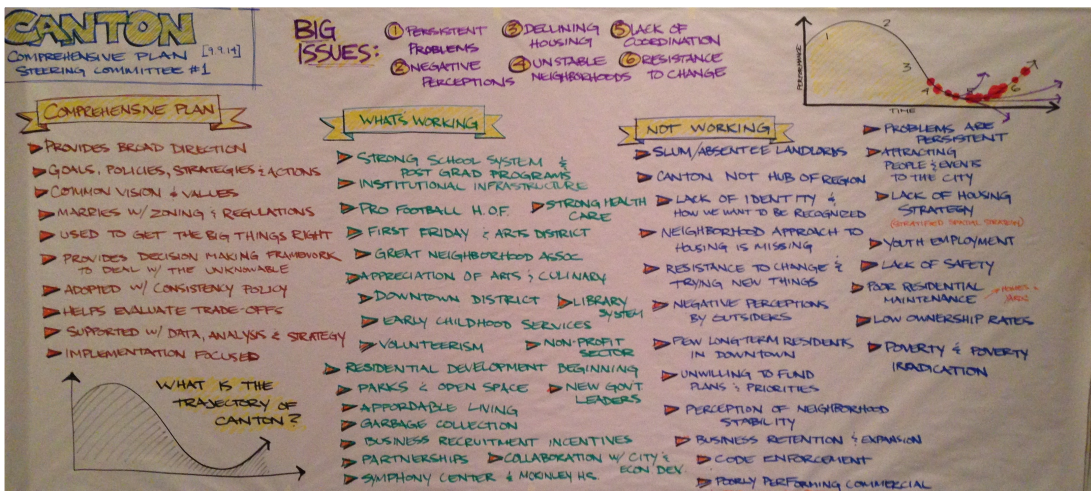 CANTON
COMPREHENSIVE PLAN [9.9.14]
STEERING COMMITTEE #1
BIG
ISSUES:
① PERSISTENT
PROBLEMS
② NEGATIVE
PERCEPTIONS
③ DECLINING
HOUSING
④ UNSTABLE
NEIGHBORHOODS
⑤ LACK OF
COORDINATION
⑥ RESISTANCE
TO CHANGE
PERFORMANCE
1
2
3
4
5
6
TIME
COMPREHENSIVE PLAN
PROVIDES BROAD DIRECTION
GOALS, POLICIES, STRATEGIES & ACTIONS
COMMON VISION & VALUES
MARRIES W/ ZONING & REGULATIONS
USED TO GET THE BIG THINGS RIGHT
PROVIDES DECISION MAKING FRAMEWORK
TO DEAL W/ THE UNKNOWABLE
ADOPTED W/ CONSISTENCY POLICY
HELPS EVALUATE TRADE-OFFS
SUPPORTED W/ DATA, ANALYSIS & STRATEGY
IMPLEMENTATION FOCUSED
WHAT IS THE
TRAJECTORY OF
CANTON?
WHATS WORKING
STRONG SCHOOL SYSTEM &
POST GRAD PROGRAMS
INSTITUTIONAL INFRASTRUCTURE
PRO FOOTBALL H.OF.
STRONG HEALTH
CARE
FIRST FRIDAY & ARTS DISTRICT
GREAT NEIGHBORHOOD ASSOC
APPRECIATION OF ARTS & CULINARY
DOWNTOWN DISTRICT
LIBRARY
SYSTEM
EARLY CHILDHOOD SERVICES
VOLUNTEERISM
NON-PROFIT
SECTOR
RESIDENTIAL DEVELOPMENT BEGINNING
PARKS & OPEN SPACE
NEW GOV'T
LEADERS
AFFORDABLE LIVING
GARBAGE COLLECTION
BUSINESS RECRUITMENT INCENTIVES
PARTNERSHIPS
COLLABORATION W/ CITY &
ECON DEV.
SYMPHONY CENTER & MCKINLEY HS.
NOT WORKING
SLUM/ABSENTEE LANDLORDS
CANTON NOT HUB OF REGION
LACK OF IDENTITY &
HOW WE WANT TO BE RECOGNIZED
NEIGHBORHOOD APPROACH TO
HOUSING IS MISSING
RESISTANCE TO CHANGE &
TRYING NEW THINGS
NEGATIVE PERCEPTIONS
BY OUTSIDERS
FEW LONGTERM RESIDENTS
IN DOWNTOWN
UNWILLING TO FUND
PLANS & PRIORITIES
PERCEPTION OF NEIGHBORHOOD
STABILITY
BUSINESS RETENTION & EXPANSION
CODE ENFORCEMENT
POORLY PERFORMING COMMERCIAL
PROBLEMS ARE
PERSISTENT
ATTRACTING
PEOPLE & EVENTS
TO THE CITY
LACK OF HOUSING
STRATEGY
(STRATIFIED SPATIAL STRATEGY)
YOUTH EMPLOYMENT
LACK OF SAFETY
POOR RESIDENTIAL
MAINTENANCE
HOMES &
YARDS
LOW OWNERSHIP RATES
POVERTY & POVERTY
IRRADICATION